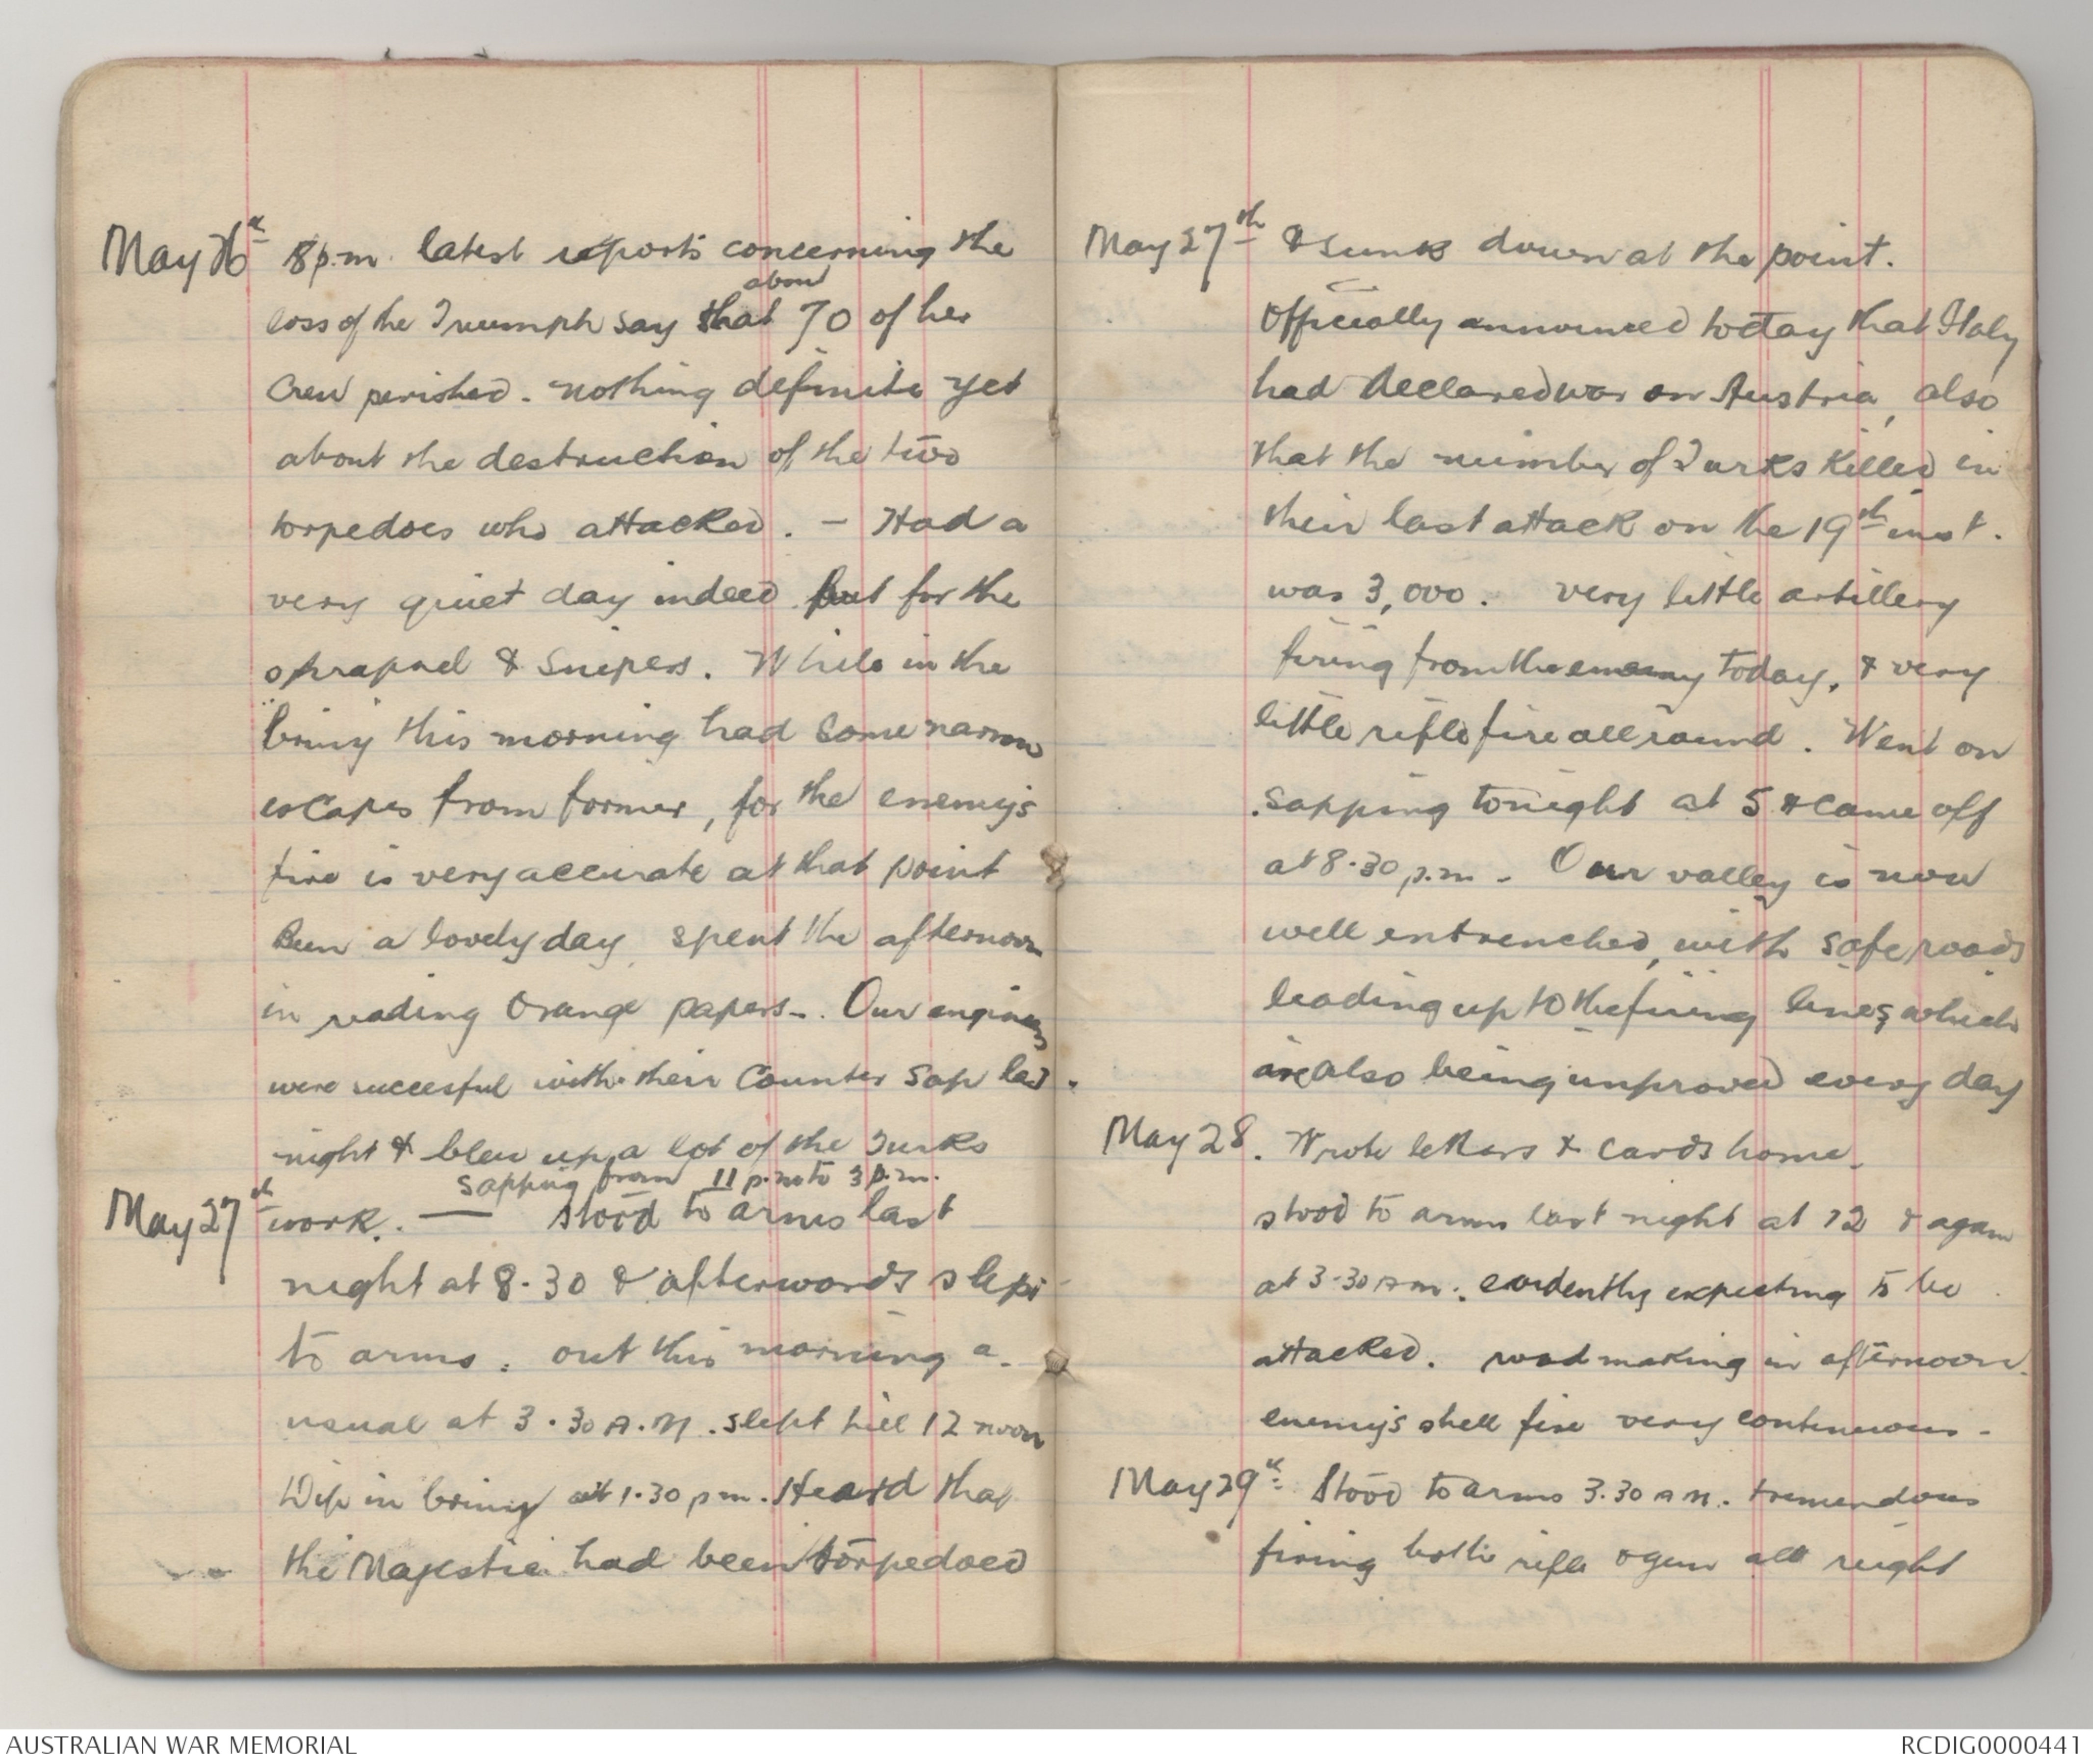 May 26th 8 p.m. latest reports concerning the
about
loss of the Triumph say that 70 of her
crew perished. nothing definite yet
about the destruction of the two
torpedoes who attacked. — Had a
very quiet day indeed but for the
shrapnel & Snipers. While in the
briny this morning had some narrow
escapes from former, for the enemy's
fire is very accurate at that point
Been a lovely day, spent the afternoon
in reading Orange papers. Our engineers
were succesful with their Counter Sap last
night & blew up a lot of the Turks
sapping from 11 p.m to 3 p.m.
May 27th work. — Stood to arms last
night at 8.30 & afterwards slept
to arms. out this morning as
usual at 3.30 A.M. slept till 12 noon
Dip in briny at 1.30 pm. Heard that
the Majestic had been torpedoed
May 27th & sunk down at the point.
Officially announced today that Italy
had declared war on Austria, also
that the number of Turks killed in
their last attack on the 19th inst.
was 3,000. very little artillery
firing from the enemy today, & very
little rifle fire all round. Went on
sapping tonight at 5 & came off
at 8.30 p.m. Our valley is now
well entrenched, with safe roads
leading up to the firing lines which
are also being improved every day
May 28. Wrote letters & cards home.
stood to arms last night at 12 & again
at 3.30 A m. evidently expecting to be
attacked. road making in afternoon.
enemy's shell fire very continuous.
May 29th Stood to arms 3.30 A M. tremendous
firing both rifle & gun all night
AUSTRALIAN WAR MEMORIAL
RCDIG0000441